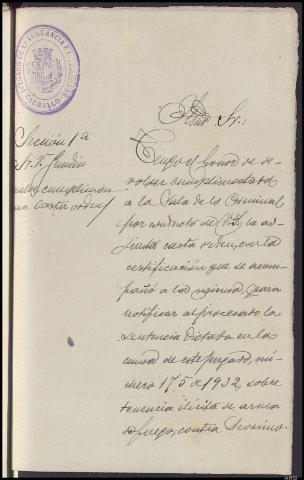 JUZGADO DE 1ª INSTANCIA E I
CARBALLO
Sección 1ª
Iltmo. Sr.:
Tengo el honor de de-
volver cumplimentada
a la Sala de lo Criminal
por conducto de V.I. la ad-
junta carta orden, con la
certificación que se acom-
pañó a la misma, para
notificar al procesado la
sentencia dictada en la
causa de este juzgado, nú-
mero 175 de 1932, sobre
tenencia ilícita de arma
de fuego, contra Severino